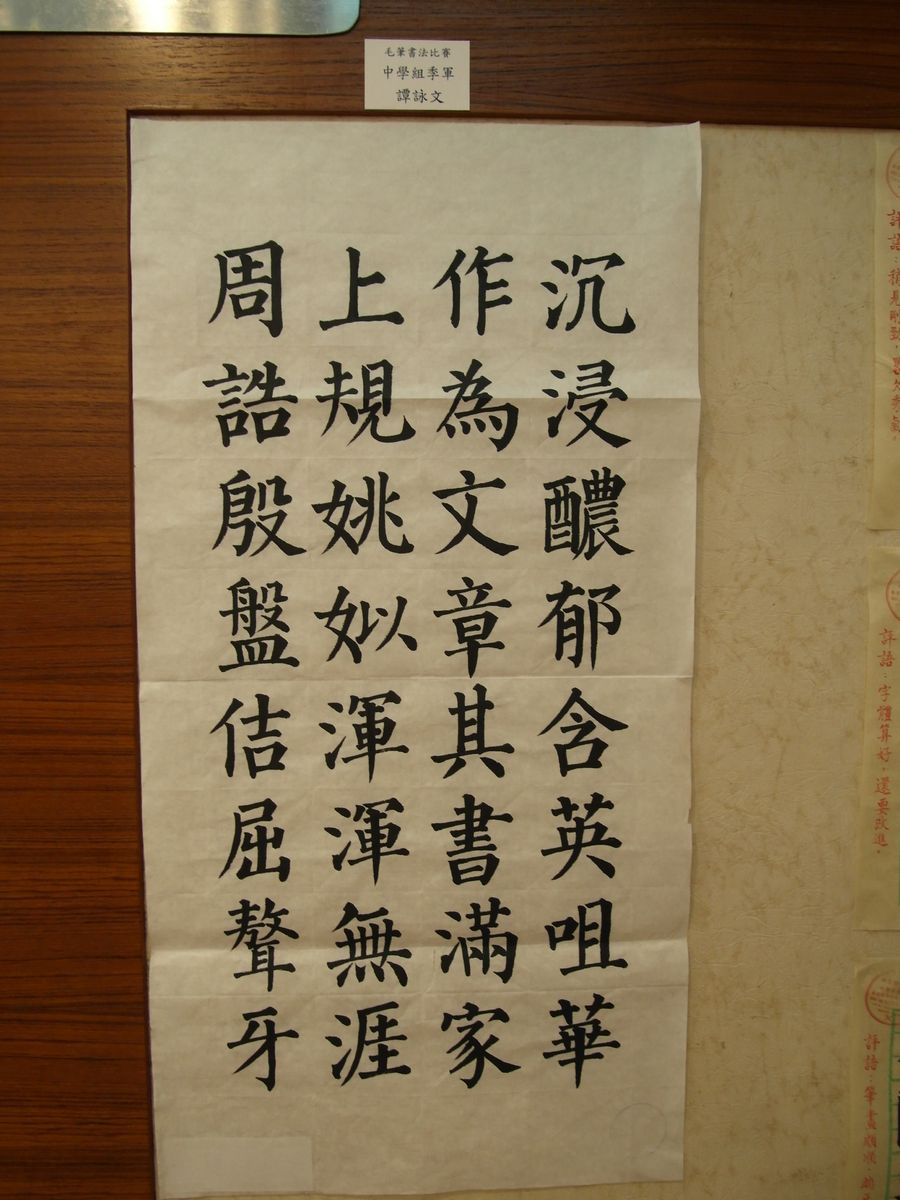 毛筆書法比賽
中學組季軍
譚詠文
沉浸醲郁含英咀華
作為文章其書滿家
上規姚姒渾渾無涯
周誥殷盤佶屈聱牙
評語：
評語：字體算好，還要改進。
評語：筆畫